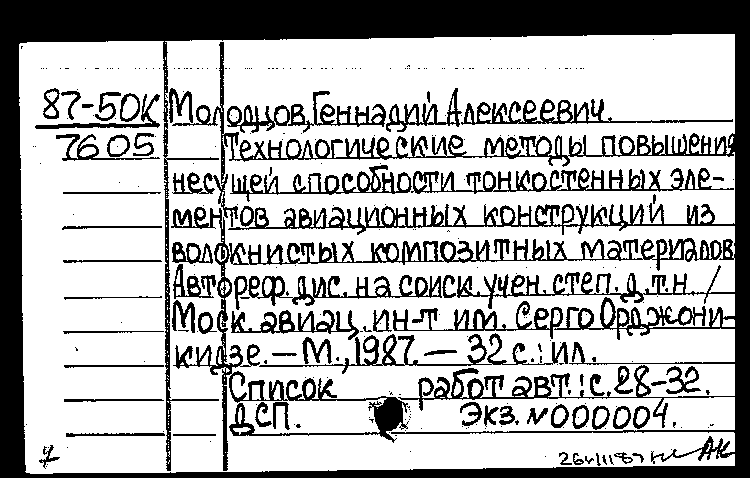 87-50К Молодцов, Геннадий Алексеевич.
7605 Технологические методы повышения
несущей способности тонкостенных эле-
ментов авиационных конструкций из
волокнистых композитных материалов:
Автореф. дис. на соиск. учен. степ. д.т.н. /
Моск. авиац. ин-т им. Серго Орджони-
кидзе. — М., 1987. — 32 с.: ил.
Список работ авт.: с. 28-32.
ДСП. Экз. №000004.
АК